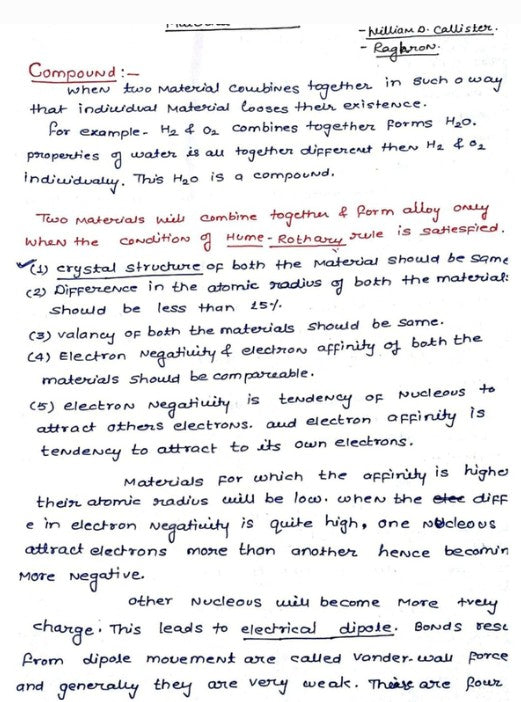 - William D. Callister.
- Raghron.
Compound :-
when two Material combines together in such a way
that individual Material looses their existence.
for example- H2 & O2 combines together forms H2O.
properties of water is all together different then H2 & O2
individually. This H2O is a compound.
Two Materials will combine together & form alloy only
when the condition of Hume-Rothary rule is satiesfied.
✓(1) crystal structure of both the Material should be same
(2) Difference in the atomic radius of both the material:
should be less than 15%.
(3) valancy of both the materials should be same.
(4) Electron Negativity & electron affinity of both the
materials should be compareable.
(5) electron Negativity is tendency of Nucleous to
attract others electrons. and electron affinity is
tendency to attract to its own electrons.
Materials for which the affinity is highe
their atomic radius will be low. when the diff
e in electron Negativity is quite high, one Nucleous
attract electrons more than another hence becomin
More Negative.
other Nucleous will become More +vely
charge. This leads to electrical dipole. Bonds resu
from dipole movement are called Vander-wall force
and generally they are very weak. These are four